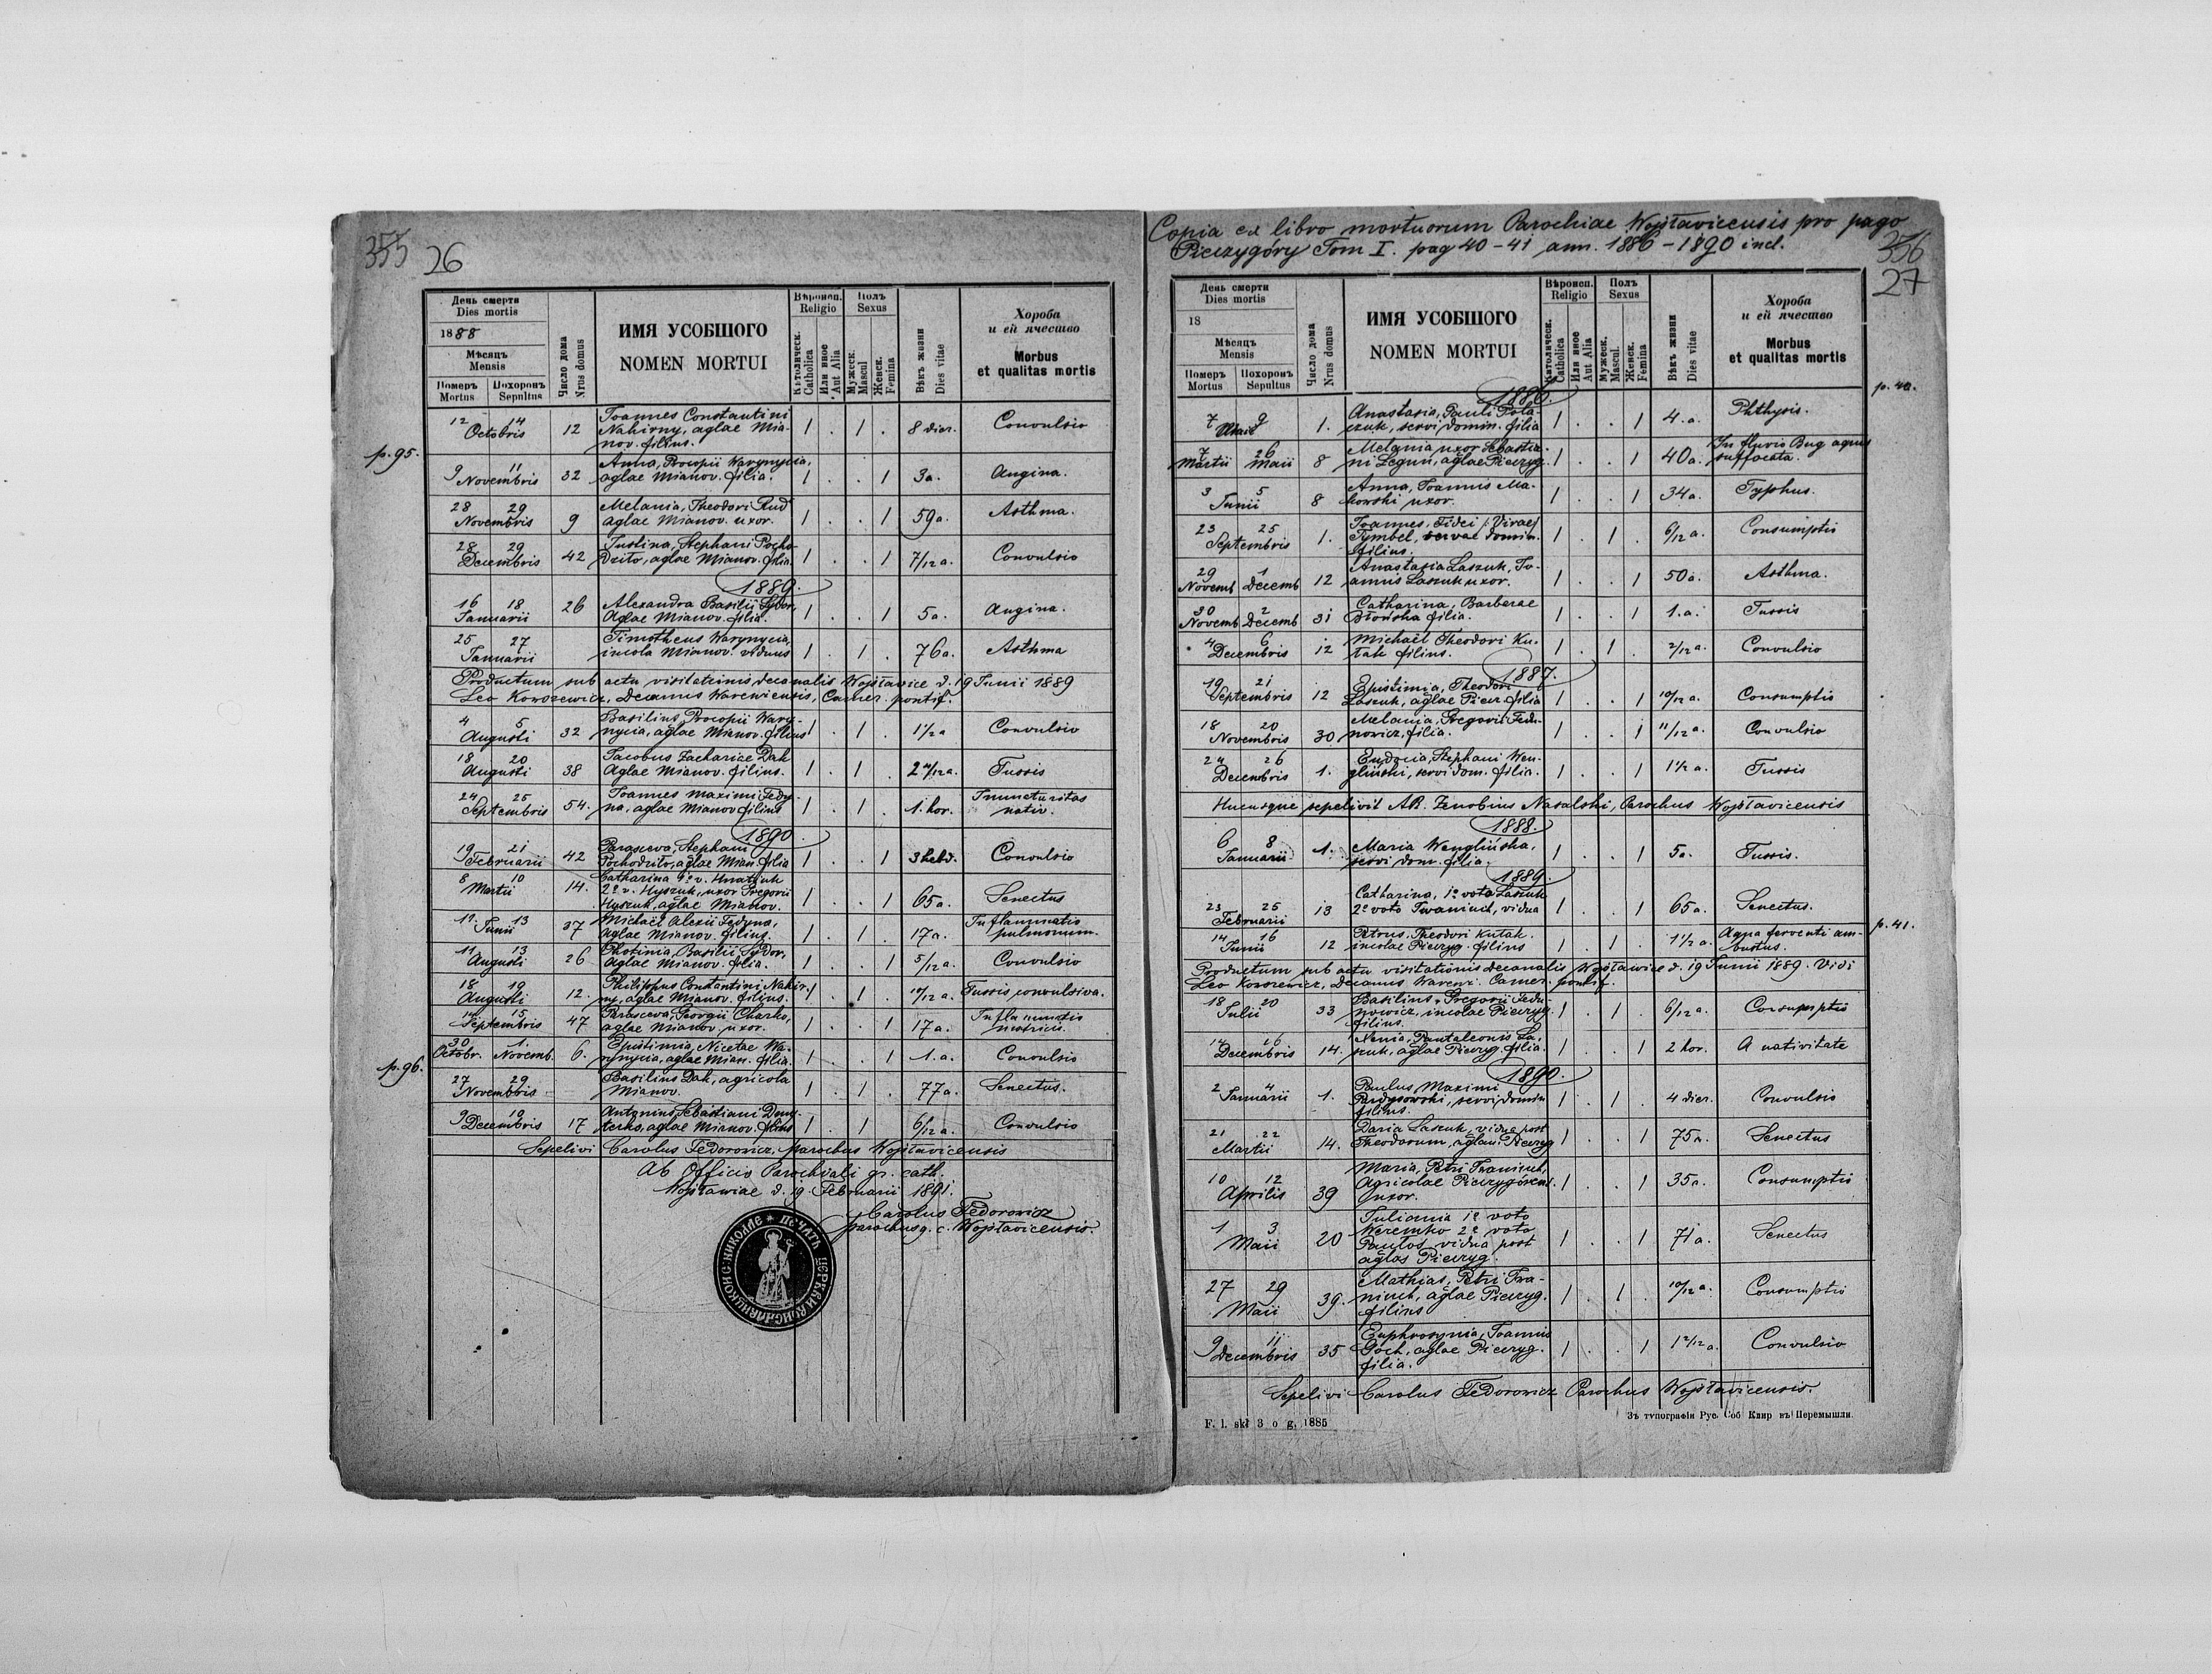 355 26
День смерти
Dies mortis
1888
Мѣсяцъ
Mensis
Померъ
Mortus
Похоронъ
Sepultus
Число дома
Nrus domus
ИМЯ УСОБШОГО
NOMEN MORTUI
Вѣроисп.
Religio
Католическ.
Catholica
Или иное
Aut Alia
Полъ
Sexus
Мужеск.
Mascul
Женск.
Femina
Вѣкъ жизни
Dies vitae
Хороба
и ей ячество
Morbus
et qualitas mortis
12 14 Octobris 12 Joannes Constantini
Nahirny, aglae Mia-
nov. filius. 1 . 1 . 8 dier. Convulsio
p. 95.
9 11 Novembris 32 Anna, Procopii Warynycia,
aglae Mianov. filia. 1 . . 1 3 a. Angina.
28 29 Novembris 9 Melania, Theodori Rud
aglae Mianov. uxor. 1 . . 1 59 a. Asthma.
28 29 Decembris 42 Justina, Stephani Pocho-
dzito, aglae Mianov. filia 1 . . 1 7/12 a. Convulsio
1889.
16 18 Januarii 26 Alexandra Basilii Sydor,
Aglae Mianov. filia. 1 . . 1 5 a. Angina.
25 27 Januarii Timotheus Warynycia,
incola Mianov. viduus 1 . 1 . 76 a. Asthma
Productum sub actu visitationis decanalis Wojsławice d. 19 Junii 1889
Leo Korosewicz, Decanus Warenensis, Camer. pontif.
4 5 Augusti 32 Basilius, Procopii Wary-
nycia, aglae Mianov. filius 1 . 1 . 1 1/2 a Convulsio
18 20 Augusti 38 Jacobus Zachariae Dak
Aglae Mianov. filius. 1 . 1 . Tussis
24 25 Septembris 54. Joannes Maximi Fedy-
na, aglae Mianov filius 1 . 1 . 1. hor. Immaturitas
nativ.
1890.
19 21 Februarii 42 Parasceva, Stephani
Pochodzito, aglae Mian. filia 1 . . 1 3 hebd. Convulsio
8 10 Martii 14. Catharina 1o v. Hnatiuk
2o v. Hyszuk, uxor Gregorii
Hyszuk, aglae Mianov. 1 . . 1 65 a. Senectus
11. 13 Junii 37 Michael Alexii Fedyna,
Aglae Mianov. filius. 1 . 1 . 17 a. Inflammatio
pulmonum.
11 13 Augusti 26 Photinia, Basilii Sydor,
Aglae Mianov. filia. 1 . . 1 5/12 a. Convulsio
18 19 Augusti 12. Philippus Constantini Nahir-
ny, aglae Mianov. filius. 1 . 1 . 10/12 a. Tussis convulsiva.
14 15 Septembris 47 Parasceva, Georgii Charko,
aglae Mianov. uxor. 1 . . 1 17 a. Inflammatio
matricis.
30 Octobr. 1. Novemb. 6. Epistimia, Nicetae Wa-
rynycia, aglae Mian. filia. 1 . . 1 1. a. Convulsio
p. 96.
27 29 Novembris - Basilius Dak, agricola
Mianov. 1 . 1 . 77 a. Senectus.
9 10 Decembris 17 Antonius, Sebastiani Demy-
terko, aglae Mianov. filius 1 . 1 . 6/12 a. Convulsio
Sepelivi Carolus Fedorowicz, parochus Wojsławicensis
Ab Officio Parochiali gr. cath.
Wojsławiae d. 19. Februarii 1891.
Carolus Fedorowicz
parochus g. c. Wojsławicensis.
Copia ex libro mortuorum Parochiae Wojsławicensis pro pago
Pieczygóry Tom I. pag 40-41 ann. 1886-1890 incl.
356
27
День смерти
Dies mortis
18
Мѣсяцъ
Mensis
Померъ
Mortus
Похоронъ
Sepultus
Число дома
Nrus domus
ИМЯ УСОБШОГО
NOMEN MORTUI
Вѣроисп.
Religio
Католическ.
Catholica
Или иное
Aut Alia
Полъ
Sexus
Мужеск.
Mascul.
Женск.
Femina
Вѣкъ жизни
Dies vitae
Хороба
и ей ячество
Morbus
et qualitas mortis
p. 40.
1886.
7 9 1. Anastasia, Pauli Pola-
czuk, servi domin. filia 1 . . 1 4. a. Phthysis.
7 Martii 26 Maii 8 Melania uxor Sebastia-
ni Legun, aglae Pieczyg. 1 . . 1 40 a. In fluvio Bug aquis
suffocata.
3 5 Junii 8 Anna, Joannis Ma-
kowski uxor. 1 . . 1 34 a. Typhus.
23 25 Septembris 1. Joannes, Fidei /:Virae/
Tymbel, servae domin.
filius. 1 . 1 . 6/12 a. Consumptio
29 Novemb 1 Decemb 12 Anastasia Laszuk, Jo-
annis Laszuk uxor. 1 . . 1 50 a. Asthma.
30 Novemb 2 Decemb 31 Catharina, Barbarae
Błońska filia. 1 . . 1 1. a. Tussis
4 6 Decembris 12 Michaël Theodori Ku-
tak filius. 1 . 1 . 2/12 a. Convulsio
1887.
19 21 Septembris 12 Epistimia, Theodori
Laszuk, aglae Piecz. filia 1 . . 1 10/12 a. Consumptio
18 20 Novembris 30 Melania, Gregorii Fedu-
nowicz, filia. 1 . . 1 11/12 a. Convulsio
24 26 Decembris 1. Eudocia, Stephani Wen-
gliński, servi dom. filia. 1 . . 1 1 1/2 a. Tussis
Hucusque sepelivit AR. Zenobius Nasalski, Parochus Wojsławicensis
1888.
6 8 Januarii 1. Maria Wenglińska,
servi dom. filia. 1 . . 1 5 a. Tussis.
1889.
23 25 Februarii 13 Catharina, 1o voto Laszuk
2o voto Iwaniuch, vidua 1 . . 1 65 a. Senectus.
p. 41.
14 16 Junii 12 Petrus, Theodori Kutak
incolae Pieczyg. filius 1 . 1 . 1 1/2 a. Aqua ferventi am-
bustus.
Productum sub actu visitationis decanalis Wojsławice d. 19 Junii 1889. Vidi
Leo Korosewicz, Decanus Warenz. Camer. pontif.
18 20 Julii 33 Basilius, Gregorii Fedu-
nowicz, incolae Pieczyg.
filius. 1 . 1 . 6/12 a. Consumptio
14 16 Decembris 14. Xenia, Pantaleonis La-
szuk, aglae Pieczyg. filia. 1 . . 1 2 hor. A nativitate
1890.
2 4 Januarii 1. Paulus Maximi
servi domin
filius. 1 . 1 . 4 dier. Convulsio
21 22 Martii 14. Daria Laszuk, vidua post
Theodorum, aglam Pieczyg 1 . . 1 75 a. Senectus
10 12 Aprilis 39 Maria, Petri Iwaniuch,
Agricolae Pieczygórens.
uxor. 1 . . 1 35 a. Consumptio
1 3 Maii 20 Juliania 1o voto
Weremko 2o voto
Pautos vidua post
aglas Pieczyg. 1 . . 1 71 a. Senectus
27 29 Maii 39. Mathias, Petri Iwa-
niuch, aglae Pieczyg.
filius 1 . 1 . 10/12 a. Consumptio
9 11 Decembris 35 Euphrosynia, Joannis
Goch, aglae Pieczyg.
filia. 1 . . 1 1 2/12 a. Convulsio
Sepelivi Carolus Fedorowicz Parochus Wojsławicensis.
F. l. skł 3 o g. 1885
Зъ типографіи Рус. Соб Клир въ Перемышли.